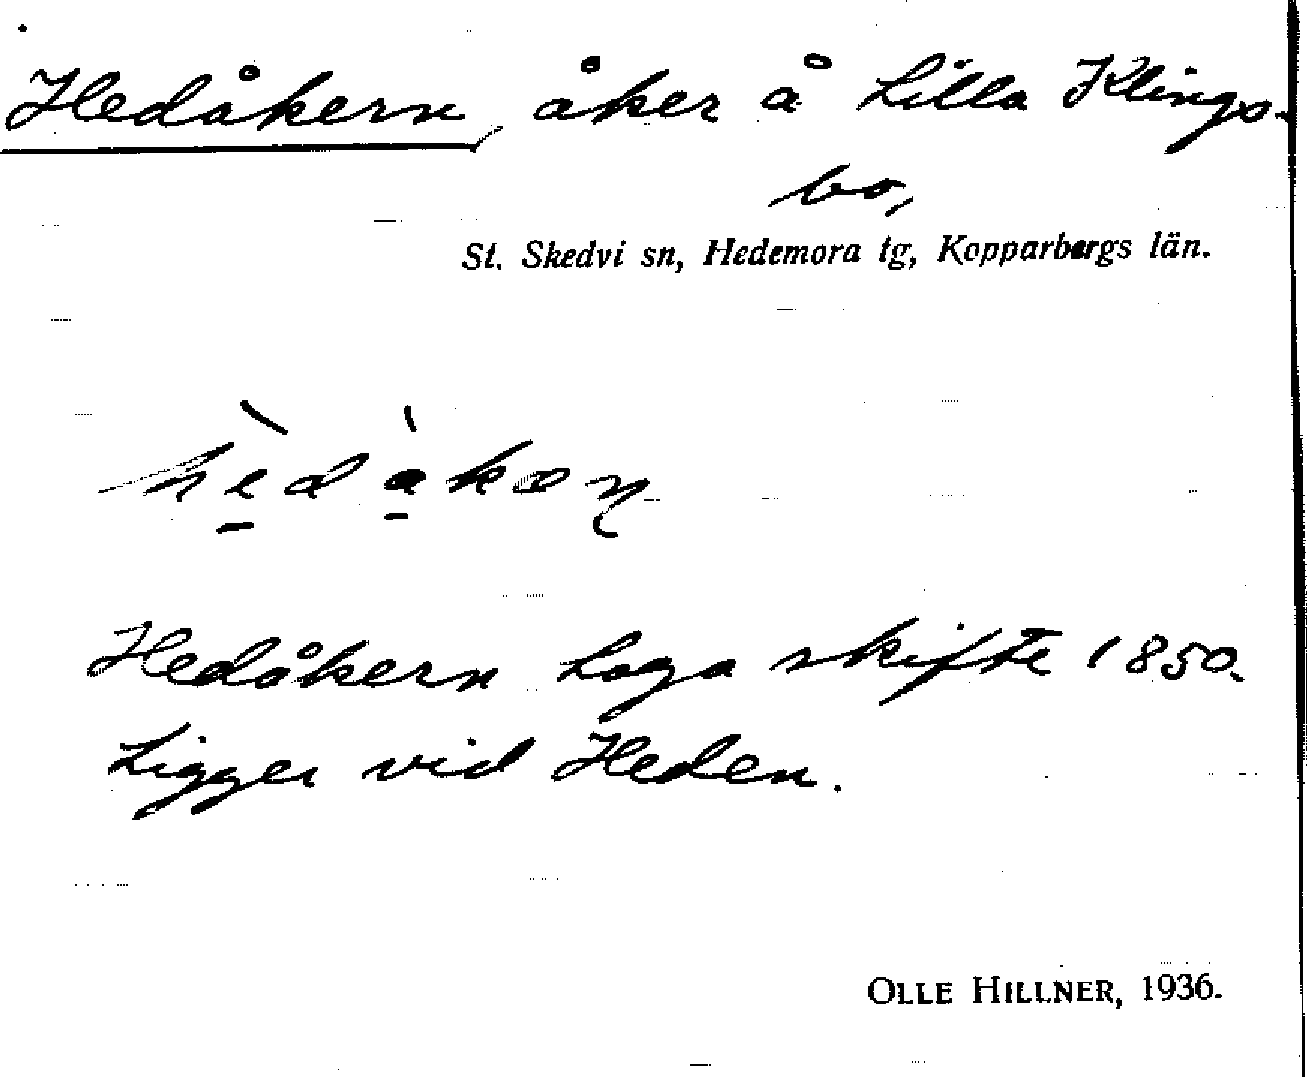 Hedåkern, åker å Lilla Klings-
bo,
St. Skedvi sn, Hedemora tg, Kopparbergs län.
Hedåkern Laga skifte 1850.
Ligger vid Heden.
OLLE HILLNER, 1936.